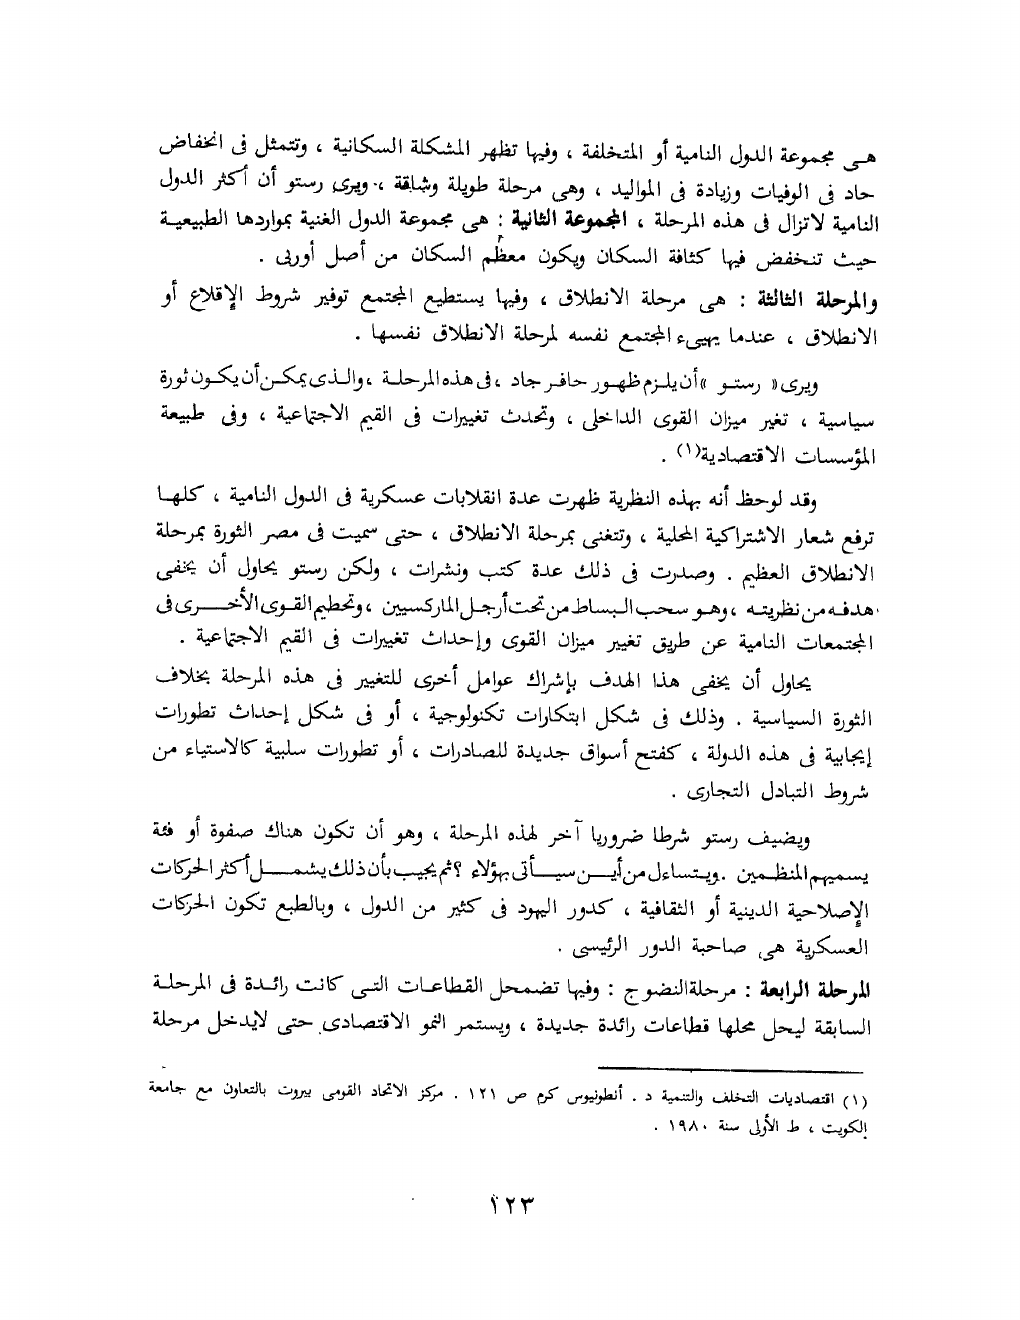 هـى مجموعة الدول النامية أو المتخلفة ، وفيها تظهر المشكلة السكانية ، وتتمثل فى انخفاض
حاد فى الوفيات وزيادة فى المواليد ، وهى مرحلة طويلة وشاقة ، ويرى رستو أن أكثر الدول
النامية لاتزال فى هذه المرحلة ، المجموعة الثانية : هى مجموعة الدول الغنية بمواردها الطبيعيـة
حيث تنخفض فيها كثافة السكان ويكون معظم السكان من أصل أوربى .
والمرحلة الثالثة : هى مرحلة الانطلاق ، وفيها يستطيع المجتمع توفير شروط الإقلاع أو
الانطلاق ، عندما يهيىء المجتمع نفسه لمرحلة الانطلاق نفسها .
ويرى « رستـو » أن يلـزم ظهـور حافـر جاد ، فى هذه المرحلـة ، والـذى يمكـن أن يكـون ثورة
سياسية ، تغير ميزان القوى الداخلى ، وتحدث تغييرات فى القيم الاجتماعية ، وفى طبيعة
المؤسسات الاقتصادية(١) .
وقد لوحظ أنه بهذه النظرية ظهرت عدة انقلابات عسكرية فى الدول النامية ، كلهـا
ترفع شعار الاشتراكية المحلية ، وتتغنى بمرحلة الانطلاق ، حتى سميت فى مصر الثورة بمرحلة
الانطلاق العظيم . وصدرت فى ذلك عدة كتب ونشرات ، ولكن رستو يحاول أن يخفى
هدفـه من نظريتـه ، وهـو سحب الـبساط من تحت أرجـل الماركسيين ، وتحطيم القـوى الأخـرى فى
المجتمعات النامية عن طريق تغيير ميزان القوى وإحداث تغييرات فى القيم الاجتماعية .
يحاول أن يخفى هذا الهدف بإشراك عوامل أخرى للتغيير فى هذه المرحلة بخلاف
الثورة السياسية . وذلك فى شكل ابتكارات تكنولوجية ، أو فى شكل إحداث تطورات
إيجابية فى هذه الدولة ، كفتح أسواق جديدة للصادرات ، أو تطورات سلبية كالاستياء من
شروط التبادل التجارى .
ويضيف رستو شرطا ضروريا آخر لهذه المرحلة ، وهو أن تكون هناك صفوة أو فئة
يسميهم المنظـمين . ويـتساءل من أيـن سيـأتى بهؤلاء ؟ ثم يجيب بأن ذلك يشمـل أكثر الحركات
الإصلاحية الدينية أو الثقافية ، كدور اليهود فى كثير من الدول ، وبالطبع تكون الحركات
العسكرية هى صاحبة الدور الرئيسى .
المرحلة الرابعة : مرحلة النضوج : وفيها تضمحل القطاعـات التـى كانت رائـدة فى المرحلـة
السابقة ليحل محلها قطاعات رائدة جديدة ، ويستمر النمو الاقتصادى حتى لايدخل مرحلة
(١) اقتصاديات التخلف والتنمية د . أنطونيوس كرم ص ١٢١ . مركز الاتحاد القومى بيروت بالتعاون مع جامعة
الكويت ، ط الأولى سنة ١٩٨٠ .
١٢٣